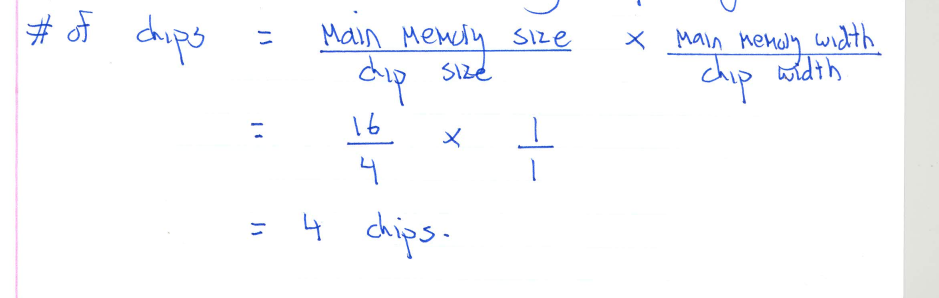 # of chips = Main Memory size / chip size × Main Memory width / chip width
= 16/4 × 1/1
= 4 chips.